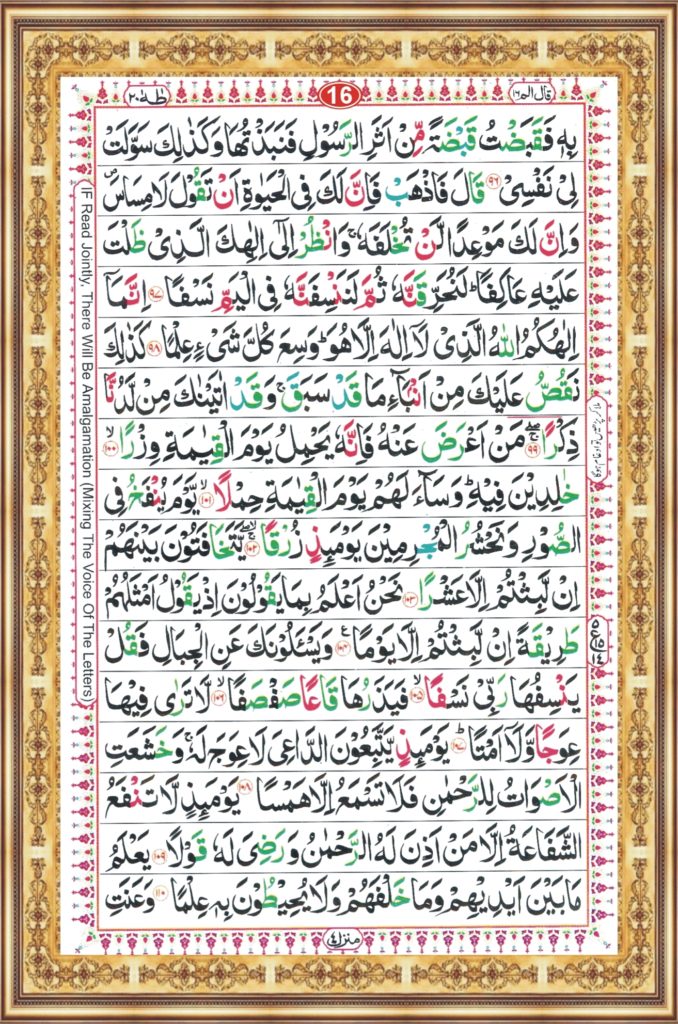 طٰهٰ ٢٠
16
قال الم ١٦
بِهٖ فَقَبَضْتُ قَبْضَةً مِّنْ اَثَرِ الرَّسُوْلِ فَنَبَذْتُهَا وَكَذٰلِكَ سَوَّلَتْ
لِيْ نَفْسِيْ ﴿٩٦﴾ قَالَ فَاذْهَبْ فَاِنَّ لَكَ فِي الْحَيٰوةِ اَنْ تَقُوْلَ لَا مِسَاسَ ۪
وَاِنَّ لَكَ مَوْعِدًا لَّنْ تُخْلَفَهٗ ۚ وَانْظُرْ اِلٰٓى اِلٰهِكَ الَّذِيْ ظَلْتَ
عَلَيْهِ عَاكِفًا ؕ لَنُحَرِّقَنَّهٗ ثُمَّ لَنَنْسِفَنَّهٗ فِي الْيَمِّ نَسْفًا ﴿٩٧﴾ اِنَّمَاۤ
اِلٰهُكُمُ اللّٰهُ الَّذِيْ لَاۤ اِلٰهَ اِلَّا هُوَ ؕ وَسِعَ كُلَّ شَيْءٍ عِلْمًا ﴿٩٨﴾ كَذٰلِكَ
نَقُصُّ عَلَيْكَ مِنْ اَنْۢبَآءِ مَا قَدْ سَبَقَ ۚ وَقَدْ اٰتَيْنٰكَ مِنْ لَّدُنَّا
ذِكْرًا ﴿٩٩﴾ مَنْ اَعْرَضَ عَنْهُ فَاِنَّهٗ يَحْمِلُ يَوْمَ الْقِيٰمَةِ وِزْرًا ﴿١٠٠﴾
خٰلِدِيْنَ فِيْهِ ؕ وَسَآءَ لَهُمْ يَوْمَ الْقِيٰمَةِ حِمْلًا ﴿١٠١﴾ يَّوْمَ يُنْفَخُ فِي
الصُّوْرِ وَنَحْشُرُ الْمُجْرِمِيْنَ يَوْمَئِذٍ زُرْقًا ﴿١٠٢﴾ يَّتَخَافَتُوْنَ بَيْنَهُمْ
اِنْ لَّبِثْتُمْ اِلَّا عَشْرًا ﴿١٠٣﴾ نَحْنُ اَعْلَمُ بِمَا يَقُوْلُوْنَ اِذْ يَقُوْلُ اَمْثَلُهُمْ
طَرِيْقَةً اِنْ لَّبِثْتُمْ اِلَّا يَوْمًا ﴿١٠٤﴾ ع وَيَسْـَٔلُوْنَكَ عَنِ الْجِبَالِ فَقُلْ
يَنْسِفُهَا رَبِّيْ نَسْفًا ﴿١٠٥﴾ فَيَذَرُهَا قَاعًا صَفْصَفًا ﴿١٠٦﴾ لَّا تَرٰى فِيْهَا
عِوَجًا وَّلَاۤ اَمْتًا ﴿١٠٧﴾ يَوْمَئِذٍ يَّتَّبِعُوْنَ الدَّاعِيَ لَا عِوَجَ لَهٗ ۚ وَخَشَعَتِ
الْاَصْوَاتُ لِلرَّحْمٰنِ فَلَا تَسْمَعُ اِلَّا هَمْسًا ﴿١٠٨﴾ يَوْمَئِذٍ لَّا تَنْفَعُ
الشَّفَاعَةُ اِلَّا مَنْ اَذِنَ لَهُ الرَّحْمٰنُ وَرَضِيَ لَهٗ قَوْلًا ﴿١٠٩﴾ يَعْلَمُ
مَا بَيْنَ اَيْدِيْهِمْ وَمَا خَلْفَهُمْ وَلَا يُحِيْطُوْنَ بِهٖ عِلْمًا ﴿١١٠﴾ وَعَنَتِ
منزل ٤
IF Read Jointly, There Will Be Amalgamation (Mixing The Voice Of The Letters)
ملا کر پڑھیں تو ادغام ہوگا